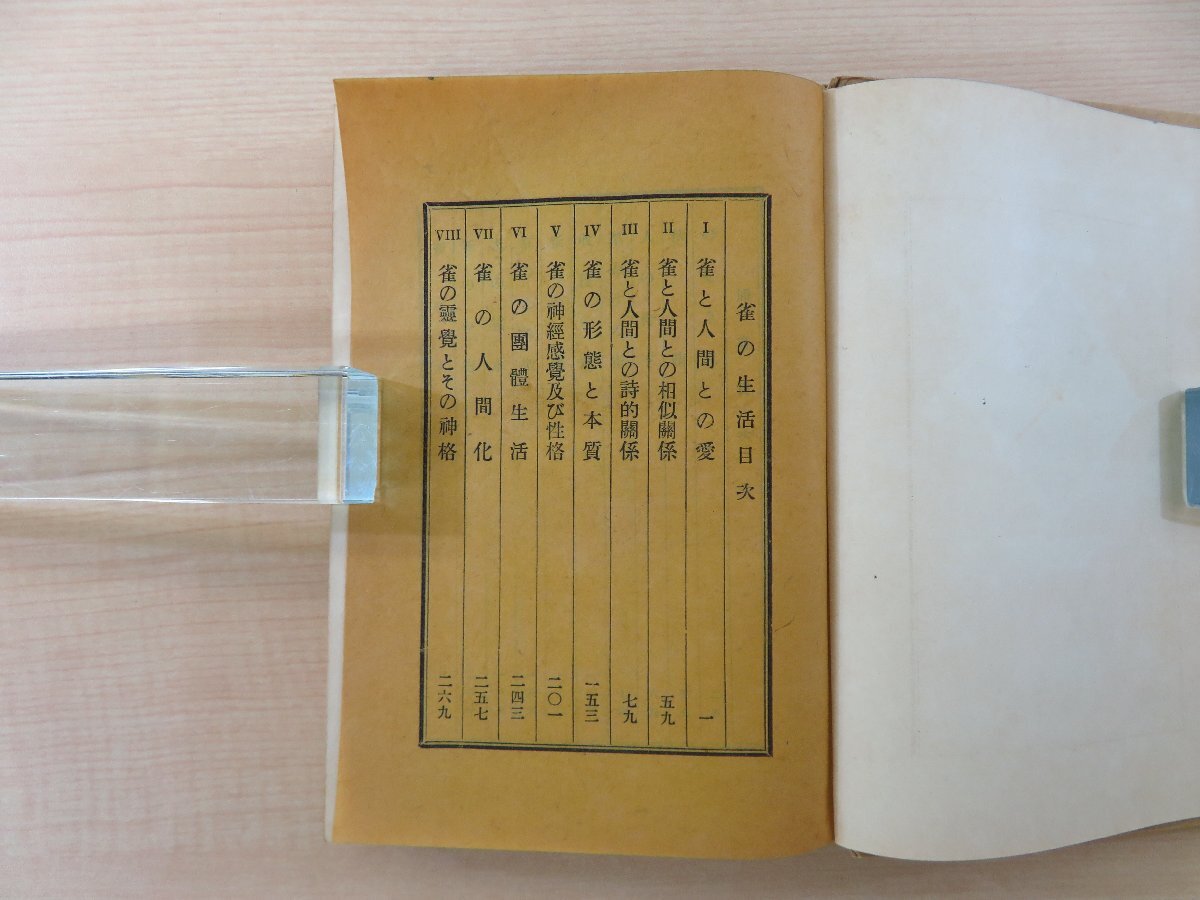 雀の生活目次
I 雀と人間との愛 一
II 雀と人間との相似關係 五九
III 雀と人間との詩的關係 七九
IV 雀の形態と本質 一五三
V 雀の神經感覺及び性格 二〇一
VI 雀の團體生活 二四三
VII 雀の人間化 二五七
VIII 雀の靈覺とその神格 二六九